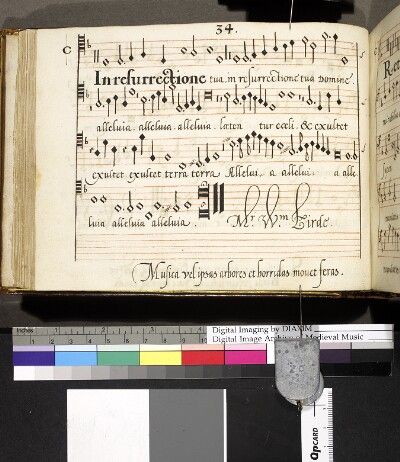 34.
C
In resurrectione tua. in resurrectione tua Domine.
alleluia. alleluia. alleluia. læten tur cœli. & exultet
exultet exultet terra terra Alleluia. a alleluia. a alle
luia alleluia alleluia alleluia. Mr. Wm Birde.
Musica vel ipsas arbores et horridas movet feras.
Inches 1 2
Digital Imaging by DIAMM
Digital Image Archive of Medieval Music
QPCARD